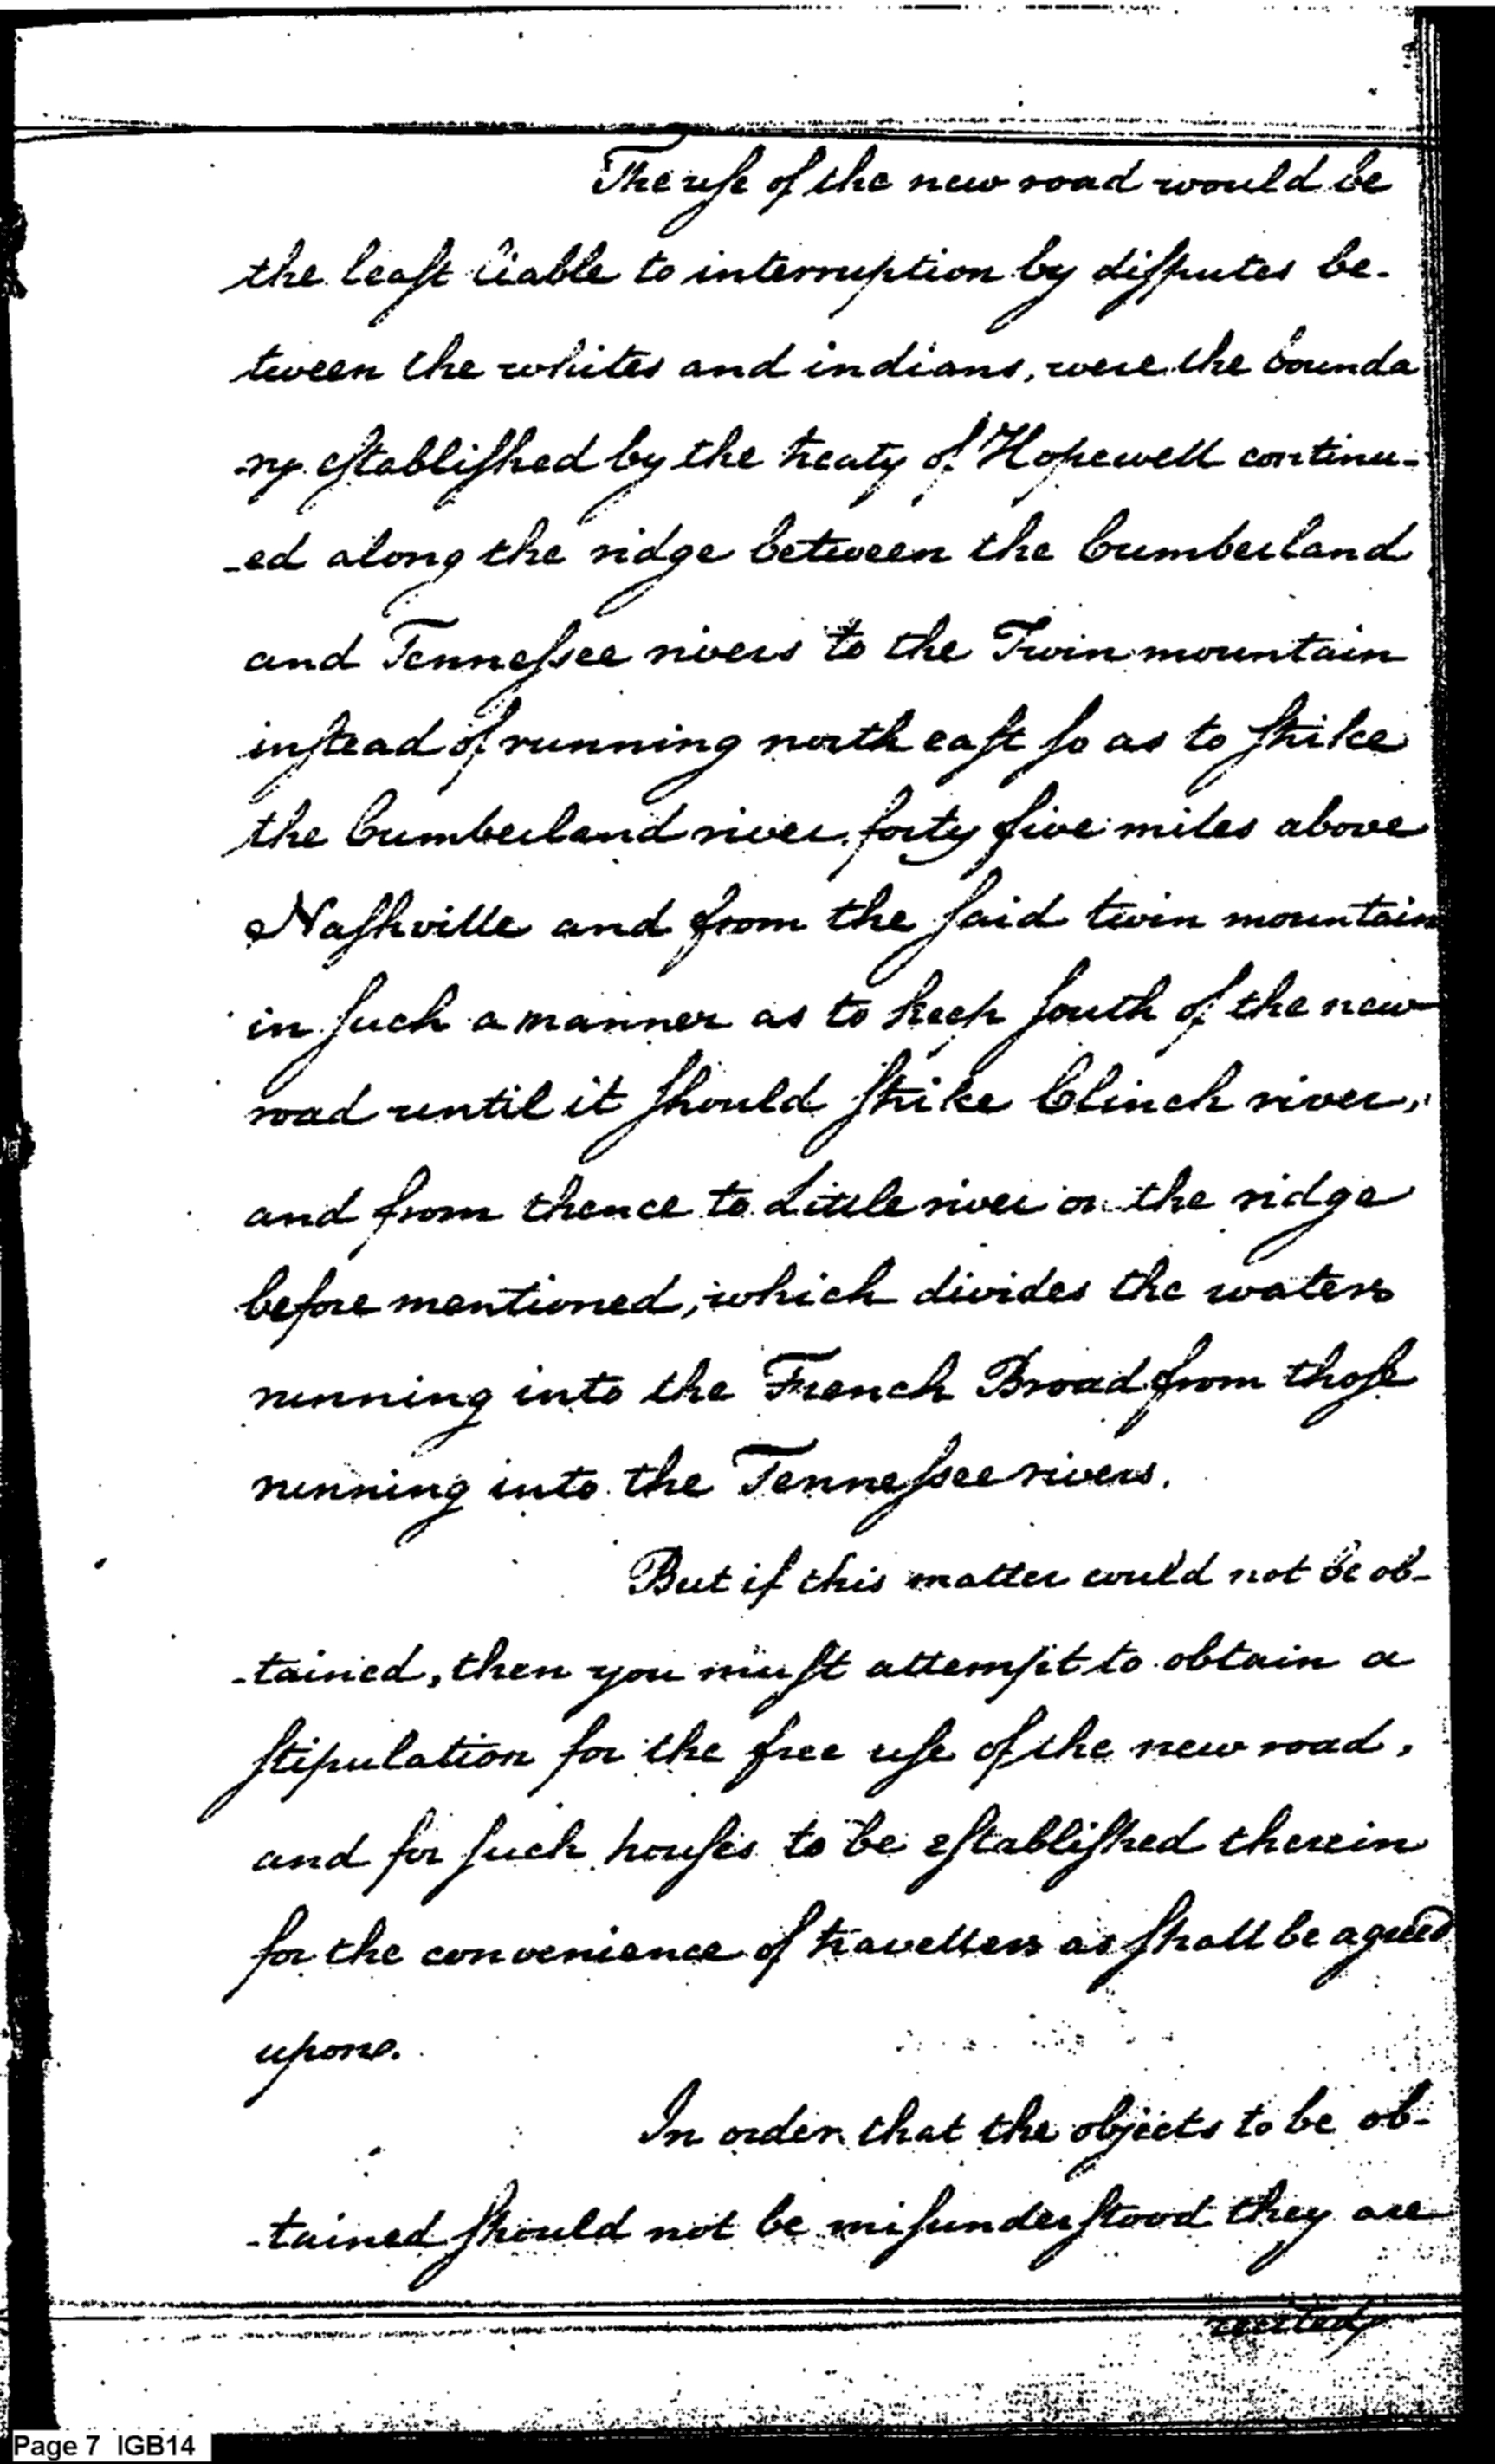 The use of the new road would be
the least liable to interruption by disputes be-
tween the whites and indians, were the bounda
-ry established by the treaty of Hopewell continu-
-ed along the ridge between the Cumberland
and Tennessee rivers to the Twin mountain
instead of running north east so as to strike
the Cumberland river forty five miles above
Nashville and from the said twin mountain
in such a manner as to keep south of the new
road until it should strike Clinch river,
and from thence to Little river or the ridge
before mentioned, which divides the waters
running into the French Broad from those
running into the Tennessee rivers.
But if this matter could not be ob-
-tained, then you must attempt to obtain a
stipulation for the free use of the new road,
and for such houses to be established therein
for the convenience of travellers as shall be agreed
upon.
In order that the objects to be ob-
-tained should not be misunderstood they are
recited
Page 7 IGB14